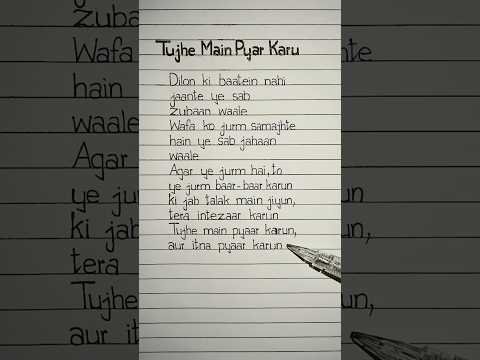 Tujhe Main Pyar Karu
Dilon ki baatein nahi
jaante ye sab
zubaan waale
Wafa ko jurm samajhte
hain ye sab jahaan
waale
Agar ye jurm hai, to
ye jurm baar-baar karun
ki jab talak main jiyun,
tera intezaar karun
Tujhe main pyaar karun,
aur itna pyaar karun